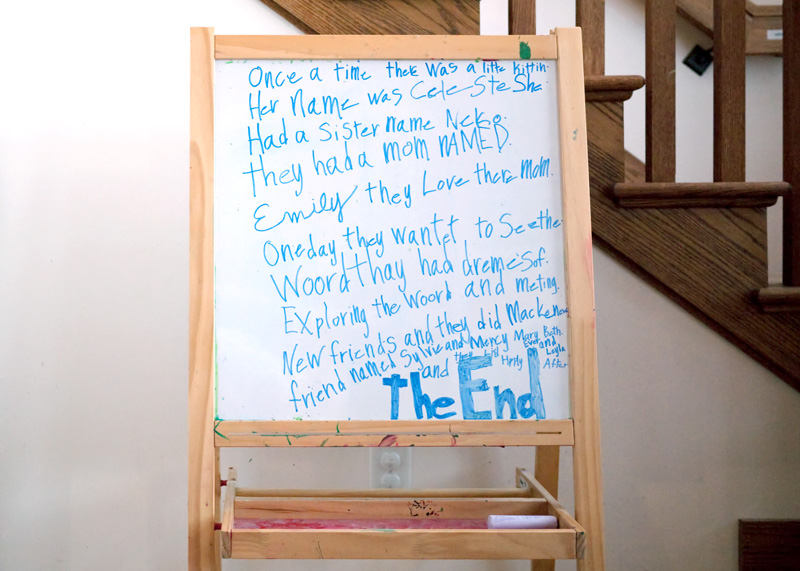 Once a time there was a little kittin.
Her Name was Cele-Ste She
Had a Sister name Neko.
they had a mom NAMED.
Emily they Love there mom.
One day they wantet to See the
Woord thay had dremes of.
Exploring the woord and meting.
New friends and they did Make new
friend named Sylvie and Mercy Mary Beth.
Ever and Leyla
and they Hrply After
The End